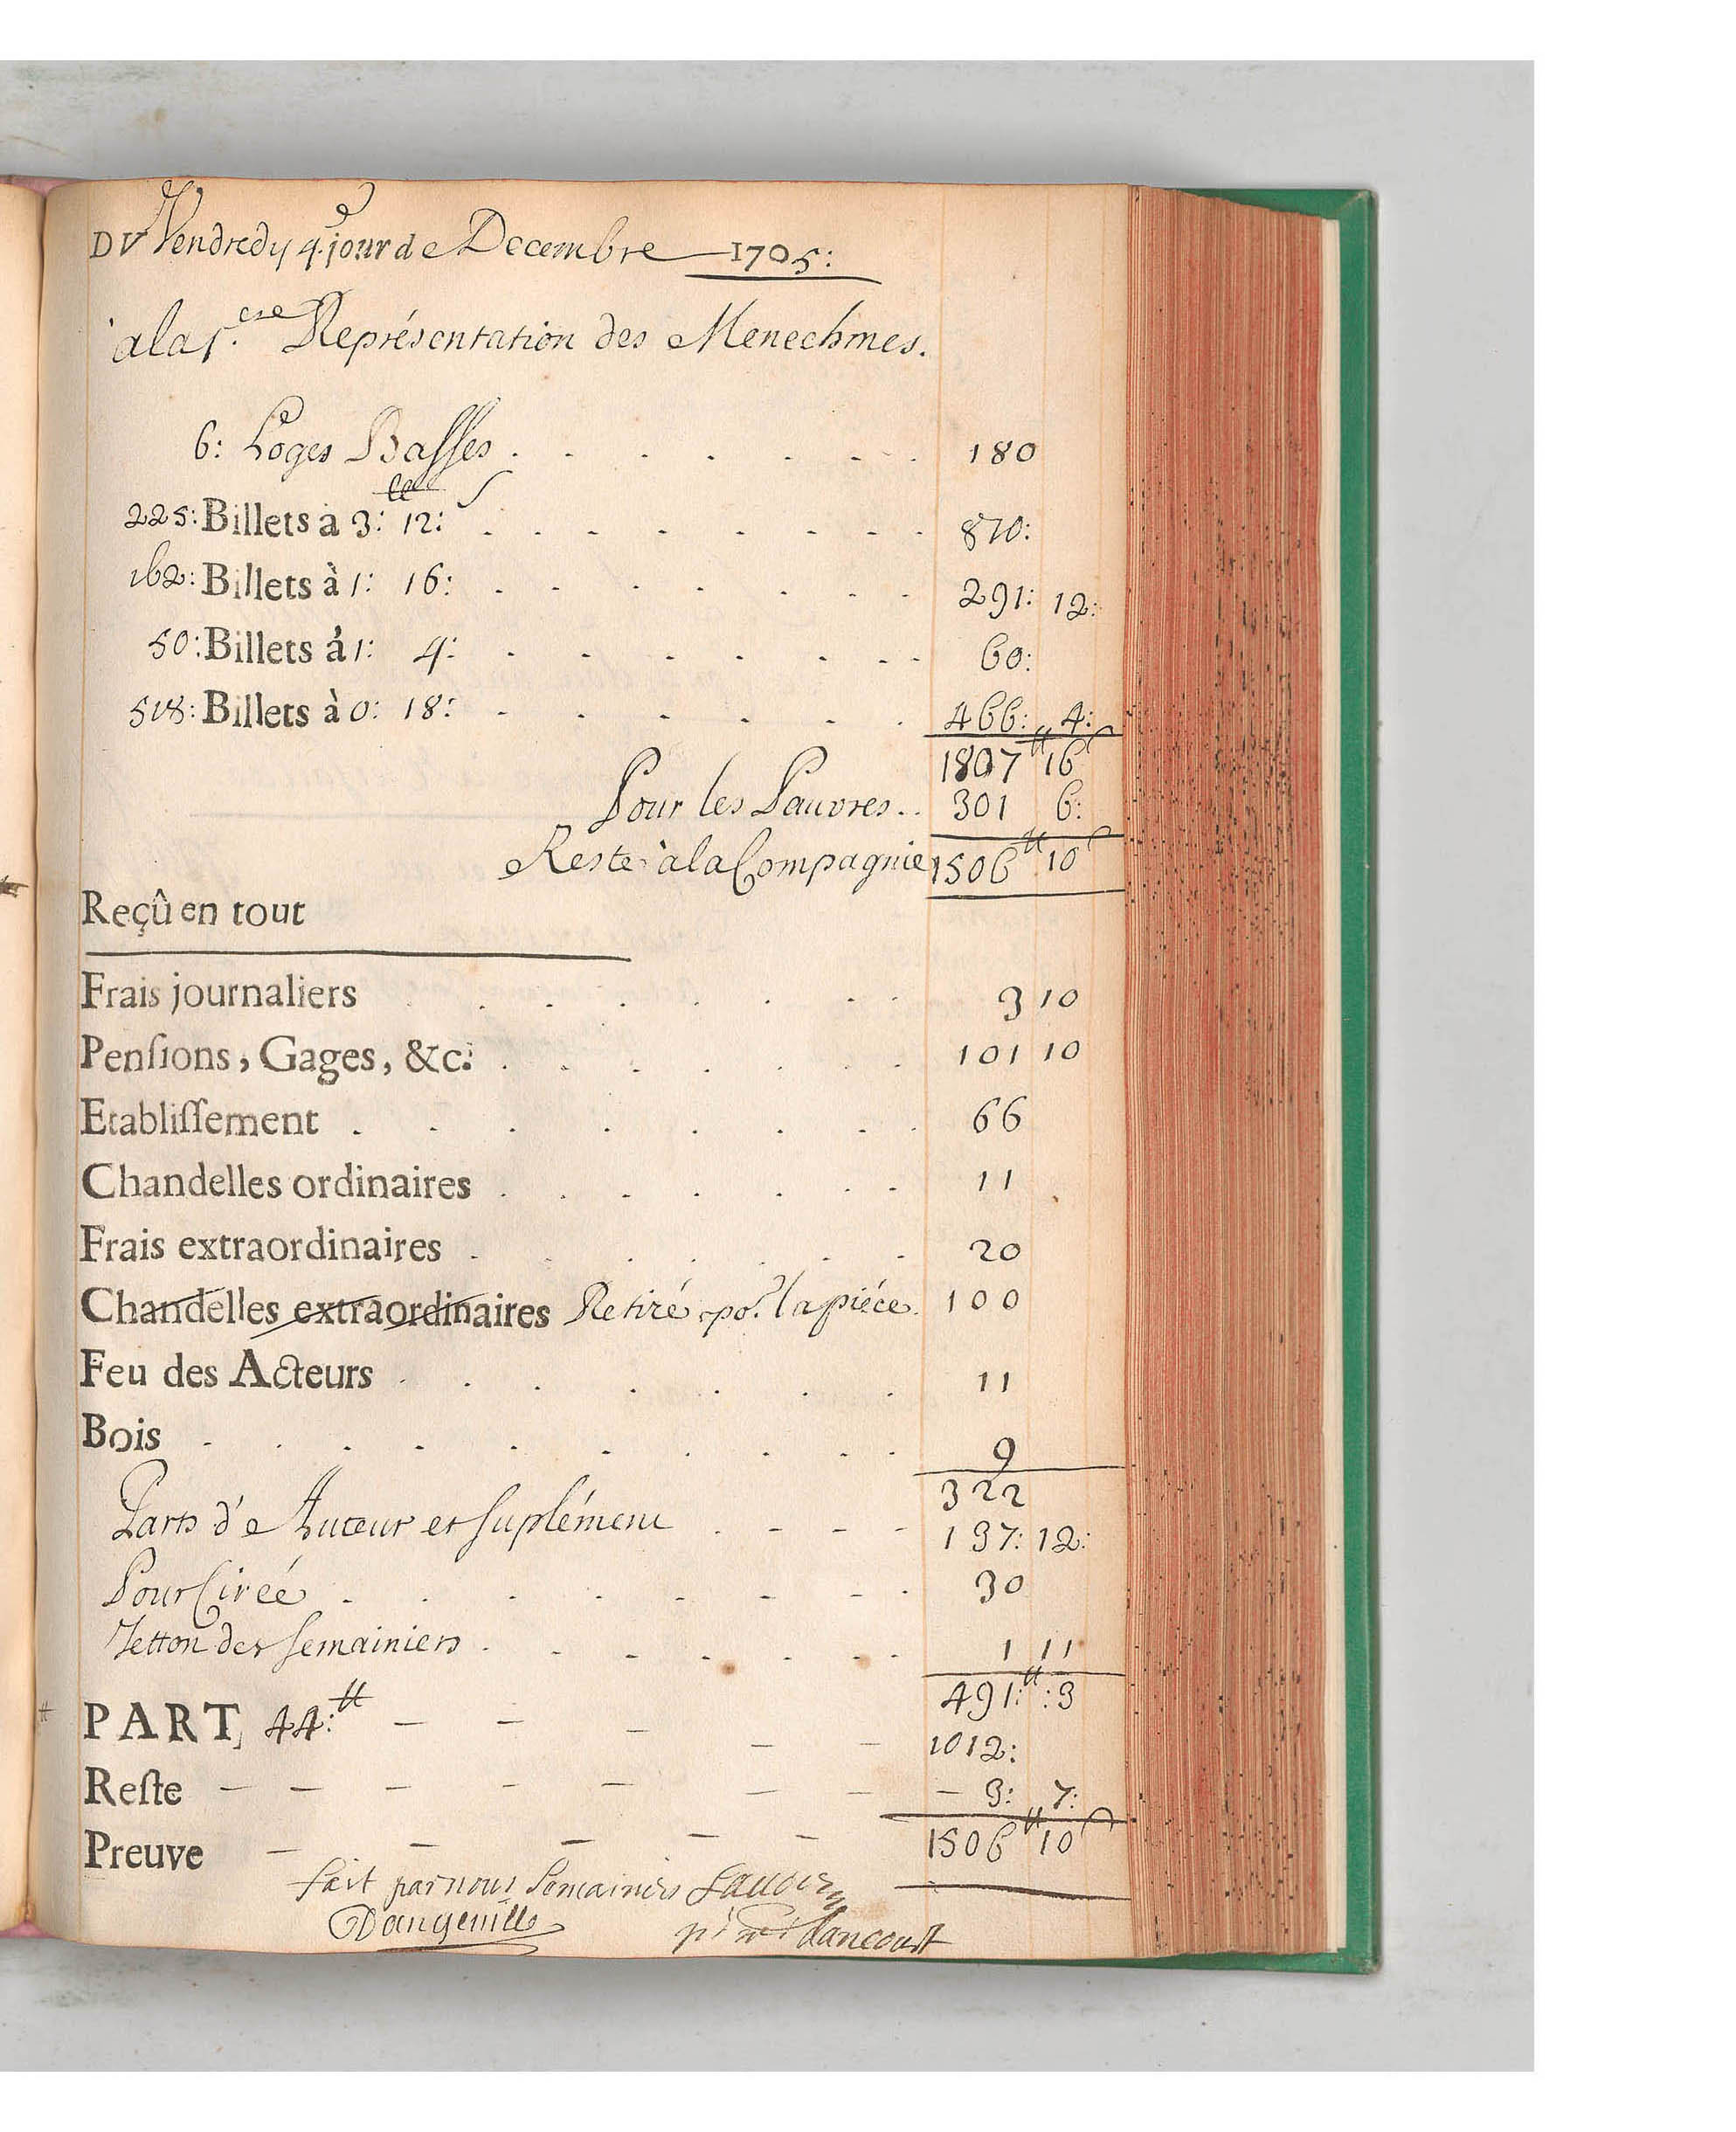 DV Vendredy 4.e jour de Decembre 1705:
à la 1.ere Représentation des Menechmes.
6: Loges Basses . . . . . . . 180
225: Billets à 3:₶ 12:s . . . . . . . . 810:
162: Billets à 1: 16: . . . . . . . 291: 12:
50: Billets à 1: 4: . . . . . . . 60:
518: Billets à 0: 18: . . . . . . 466: 4:
1807₶ 16s
Pour les Pauvres . . 301 6:
Reste à la Compagnie 1506₶ 10s
Reçû en tout
Frais journaliers . . . . . . . 3 10
Pensions, Gages, &c. . . . . . . . 101 10
Etablissement . . . . . . . . 66
Chandelles ordinaires . . . . . . . 11
Frais extraordinaires . . . . . . . 20
Chandelles extraordinaires Retiré po.r la piéce . 100
Feu des Acteurs . . . . . . . 11
Bois . . . . . . . . . . 9
322
Parts d'Auteur et suplément . - - - 137: 12:
Pour Cirée . . . . . . - - . 30
Jetton des semainiers . . - - . - . . 1 11
491:₶ :3
PART, 44:₶ - - - - - 1012:
Reste - - - - - - - - 3: 7:
Preuve - - - - - 1506₶ 10s
fait par nous Semainiers
Dangeville
Dancourt